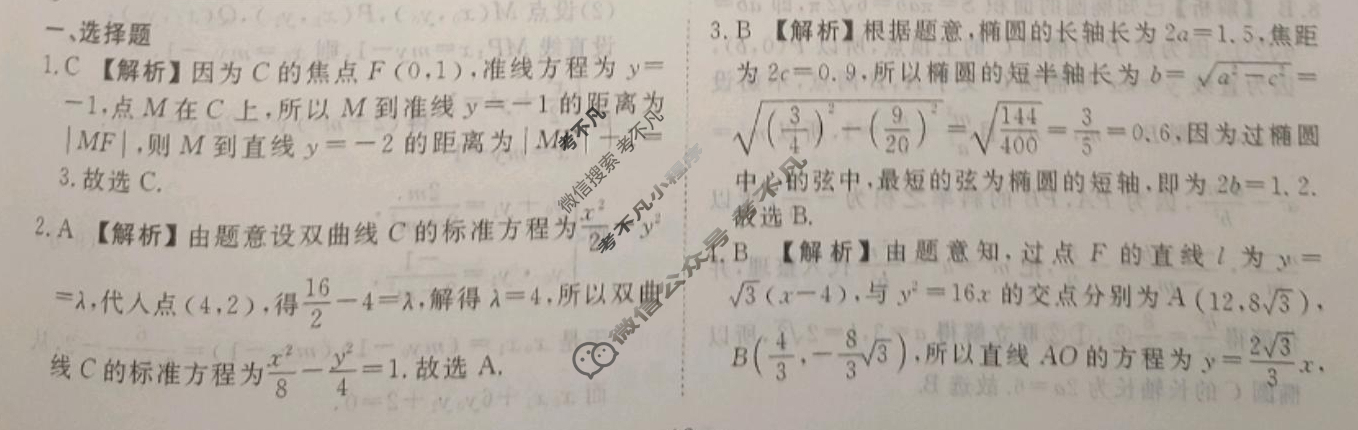 一、选择题
1. C 【解析】因为 C 的焦点 F(0,1),准线方程为 y=
-1,点 M 在 C 上,所以 M 到准线 y=-1 的距离为
|MF|,则 M 到直线 y=-2 的距离为 |M
3. 故选 C.
2. A 【解析】由题意设双曲线 C 的标准方程为 x²/2 y²
=λ,代入点(4,2),得 16/2 -4=λ,解得 λ=4,所以双曲
线 C 的标准方程为 x²/8 - y²/4 =1. 故选 A.
3. B 【解析】根据题意,椭圆的长轴长为 2a=1.5,焦距
为 2c=0.9,所以椭圆的短半轴长为 b= √(a²-c²) =
√((3/4)²-(9/20)²) = √(144/400) = 3/5 =0.6,因为过椭圆
中心的弦中,最短的弦为椭圆的短轴,即为 2b=1.2.
故选 B.
B 【解析】由题意知,过点 F 的直线 l 为 y=
√3(x-4),与 y²=16x 的交点分别为 A(12,8√3),
B(4/3,-8/3√3),所以直线 AO 的方程为 y= 2√3/3 x,
考不凡
微信搜索 考不凡
考不凡小程序
微信公众号 考不凡